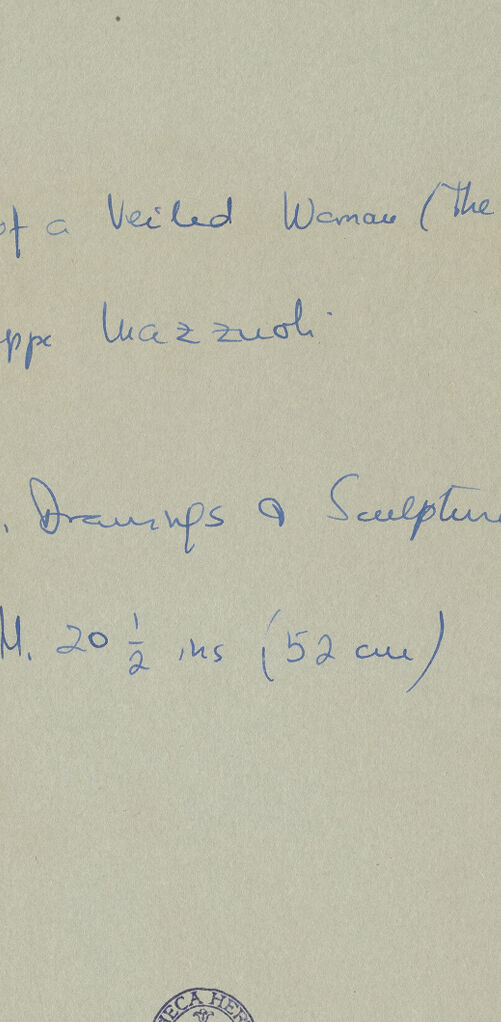 of a Veiled Woman (The
ppe Mazzuoli
. Drawings & Sculpture
H. 20 1/2 ins (52 cm)
HECA HER